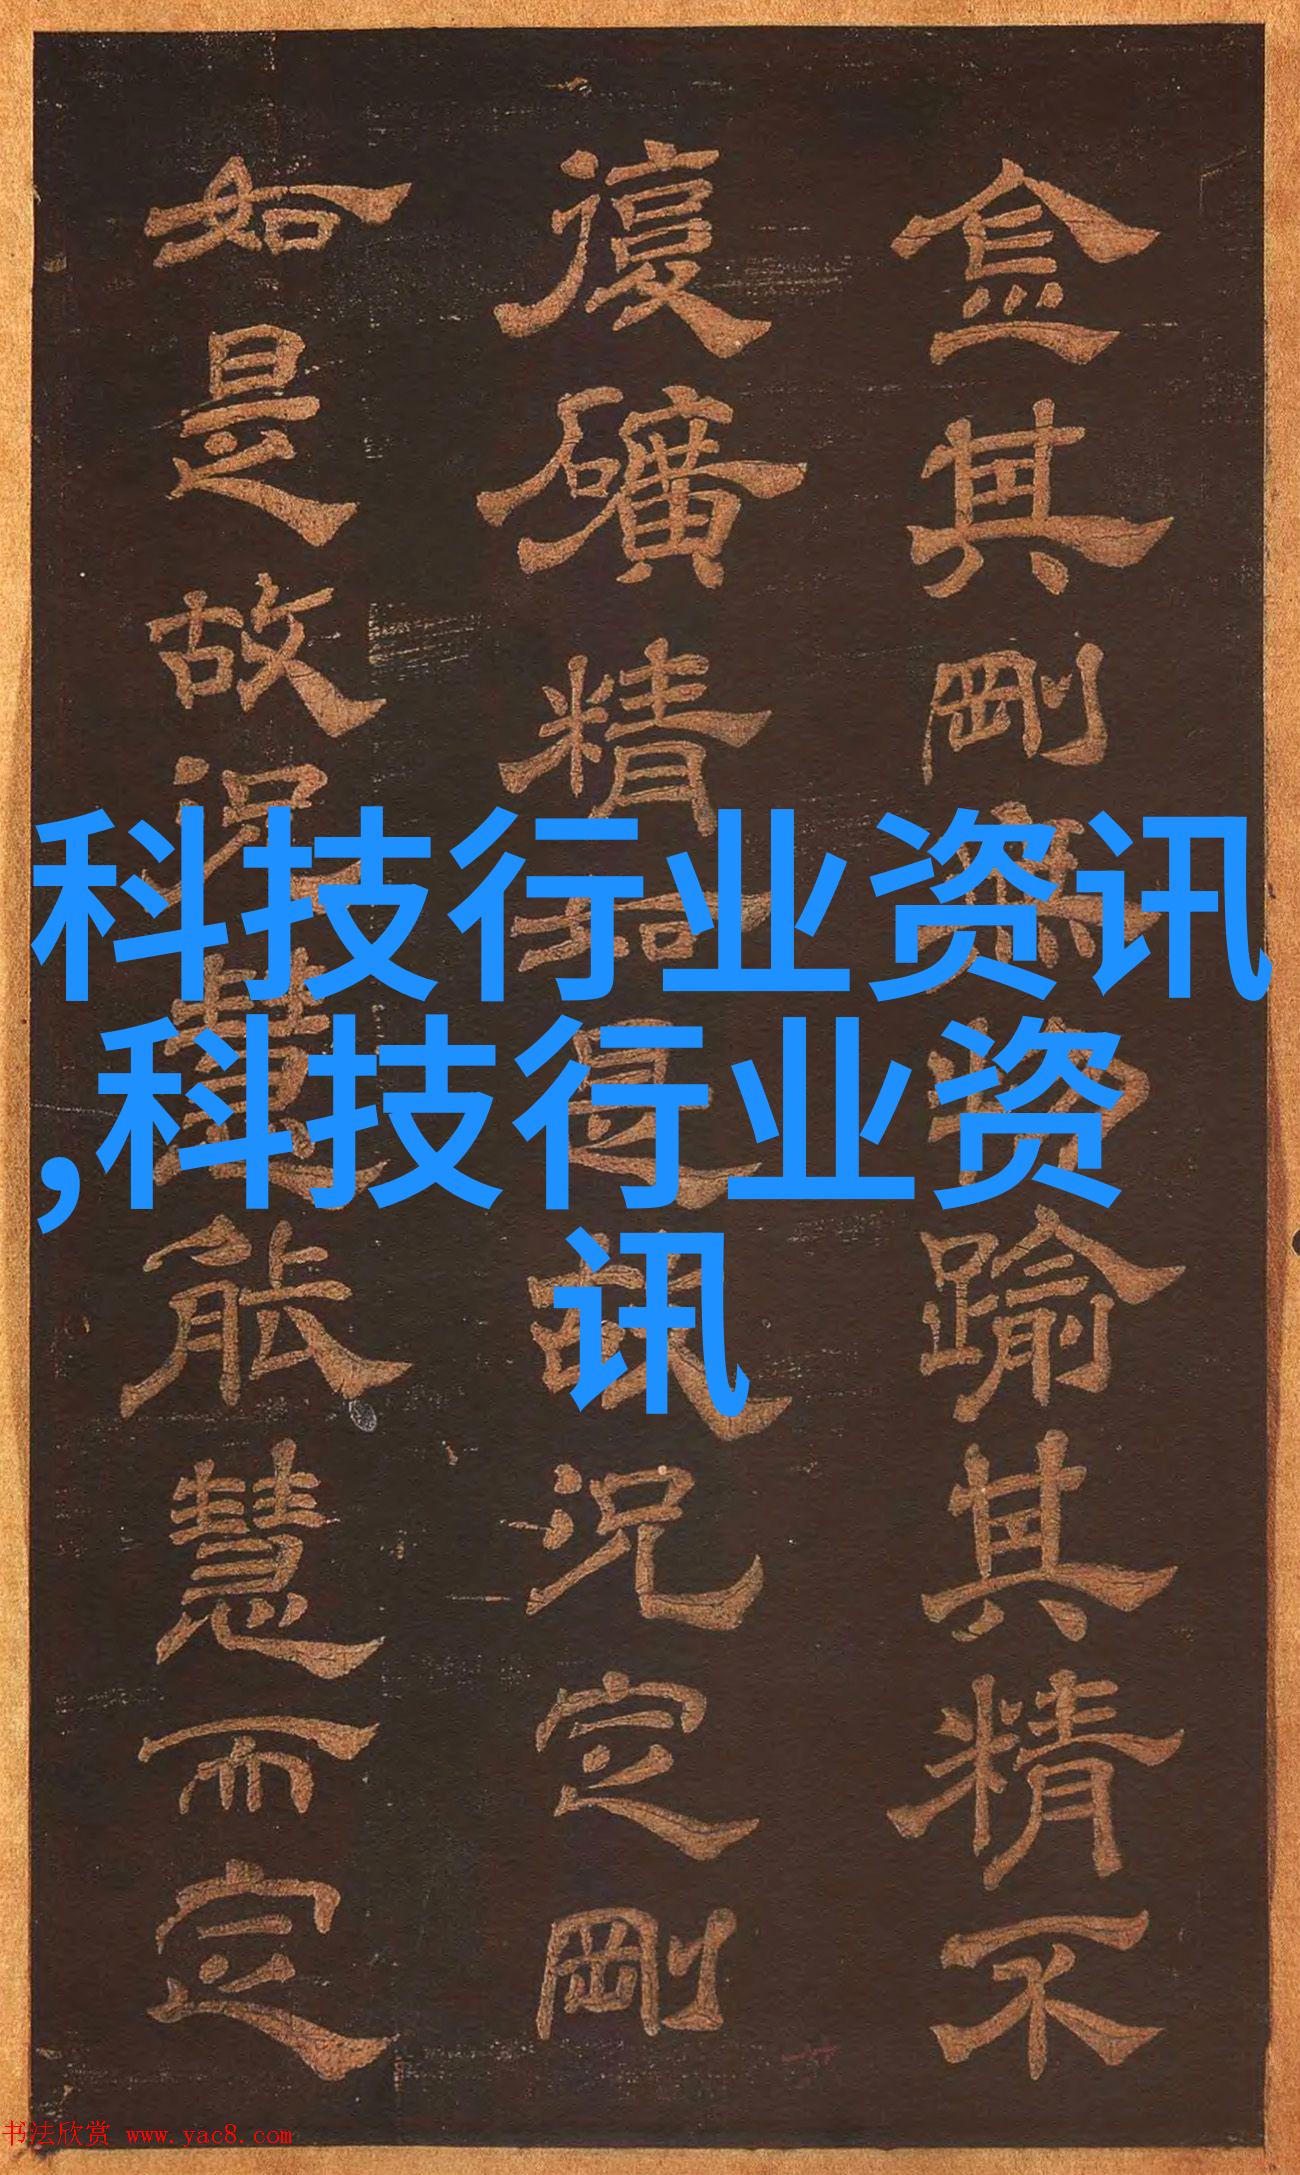 金其剛無物踰其精不
復礦精如是故況定剛
如是故況慧能慧而定
科技行业资讯
,科技行业资
讯
书法欣赏 www.yac8.com